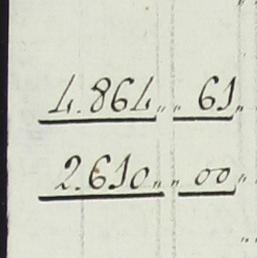 4.864 „ „ 61 „
2.610 „ „ 00 „
„